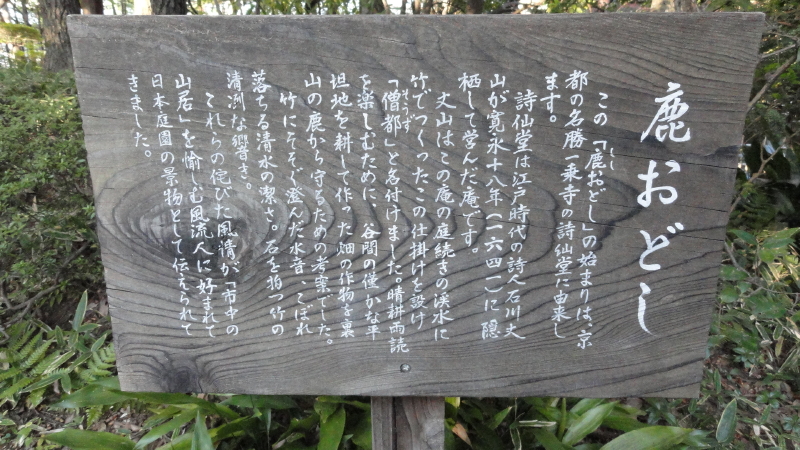 鹿おどし
この「鹿おどし」の始まりは、京
都の名勝一乗寺の詩仙堂に由来し
ます。
詩仙堂は江戸時代の詩人石川丈
山が寛永十八年(一六四一)に隠
栖して学んだ庵です。
丈山はこの庵の庭続きの渓水に
竹でつくったこの仕掛けを設け
「僧都」と名付けました。晴耕雨読
を楽しむために、谷間の僅かな平
坦地を耕して作った畑の作物を裏
山の鹿から守るための考案でした。
竹にそそぐ澄んだ水音、こぼれ
落ちる清水の潔さ。石を拍つ竹の
清冽な響き。
これらの侘びた風情が、「市中の
山居」を愉しむ風流人に好まれて
日本庭園の景物として伝えられて
きました。